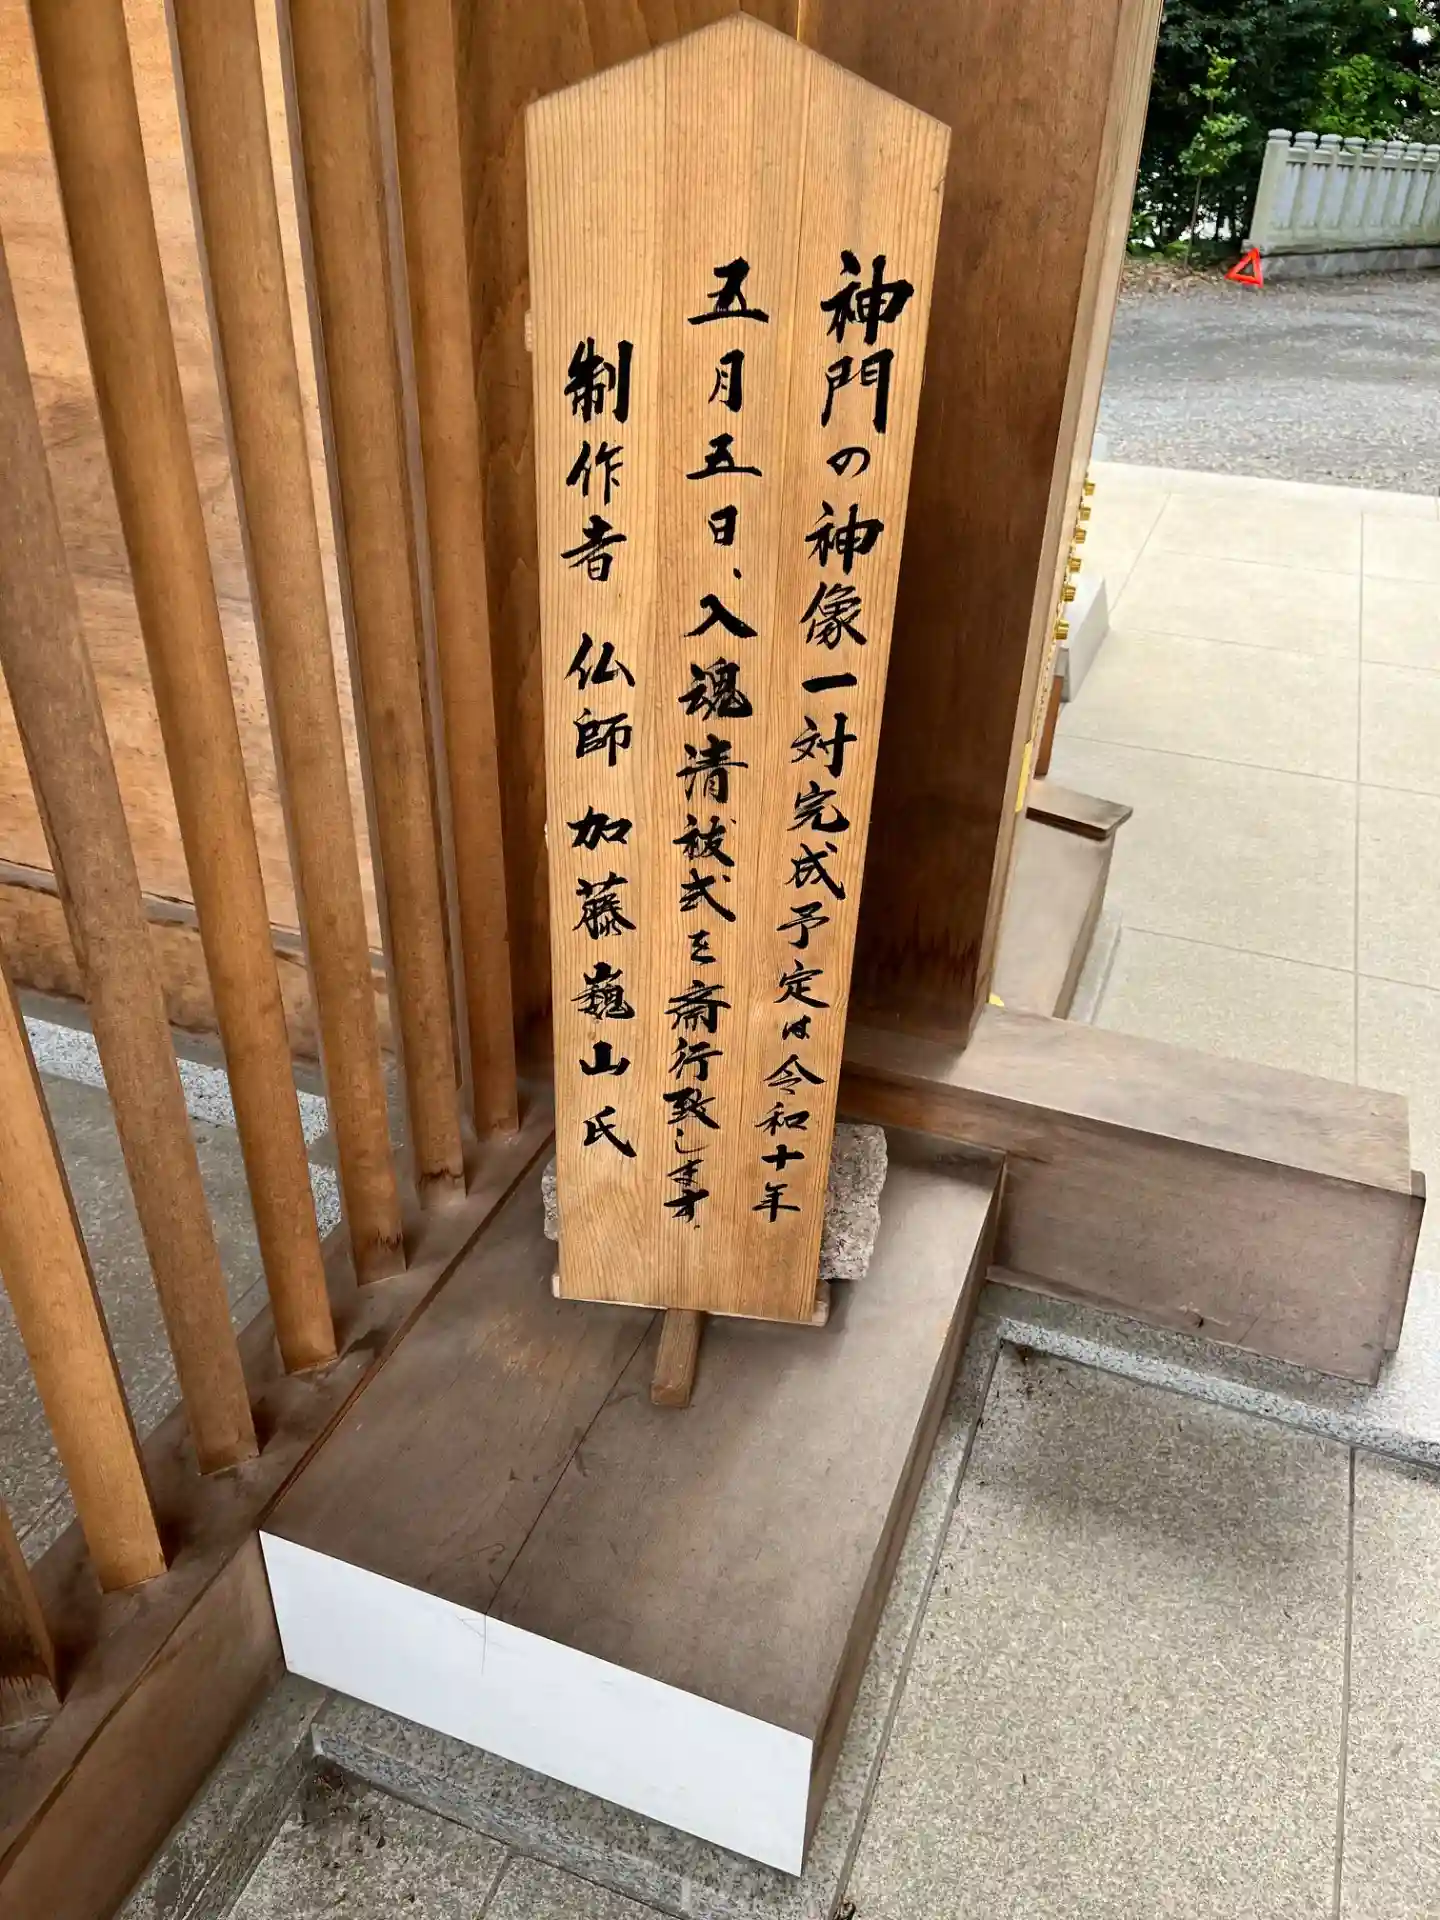 神門の神像一対完成予定は令和十年
五月五日、入魂清祓式を斎行致します。
制作者 仏師 加藤巍山氏